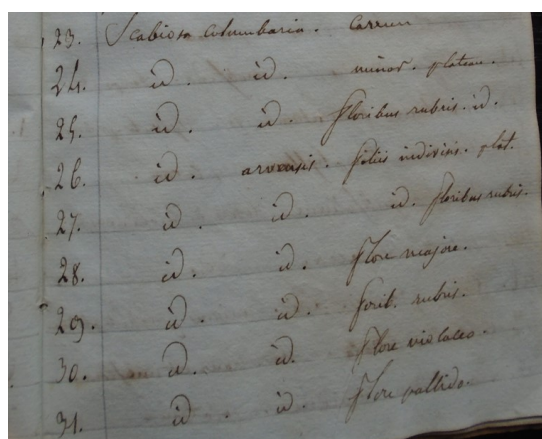 23. Scabiosa columbaria. Carrun
24. id. id. minor. plateau.
25. id. id. floribus rubris. id.
26. id. arvensis. foliis indivisis. plat.
27. id. id. id. floribus rubris.
28. id. id. flore majore.
29. id. id. florib. rubris.
30. id. id. flore violaceo.
31. id. id. flore pallido.